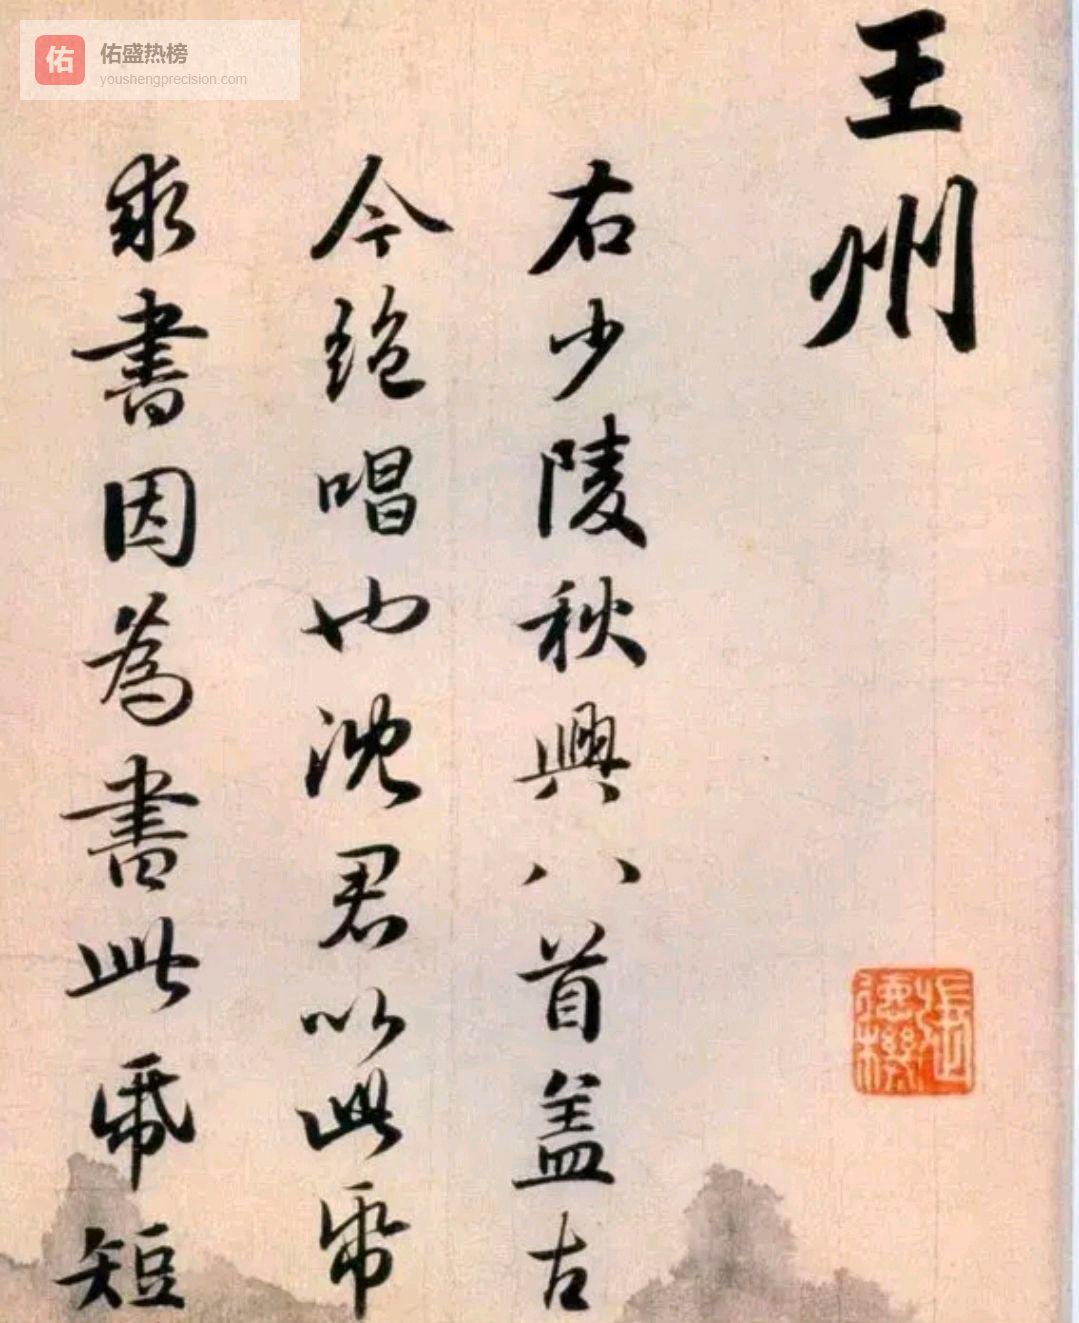 佑
佑盛热榜
youshengprecision.com
王州
右少陵秋興八首盖古
今絶唱也沈君以此帋
求書因為書此帋短
張
德機